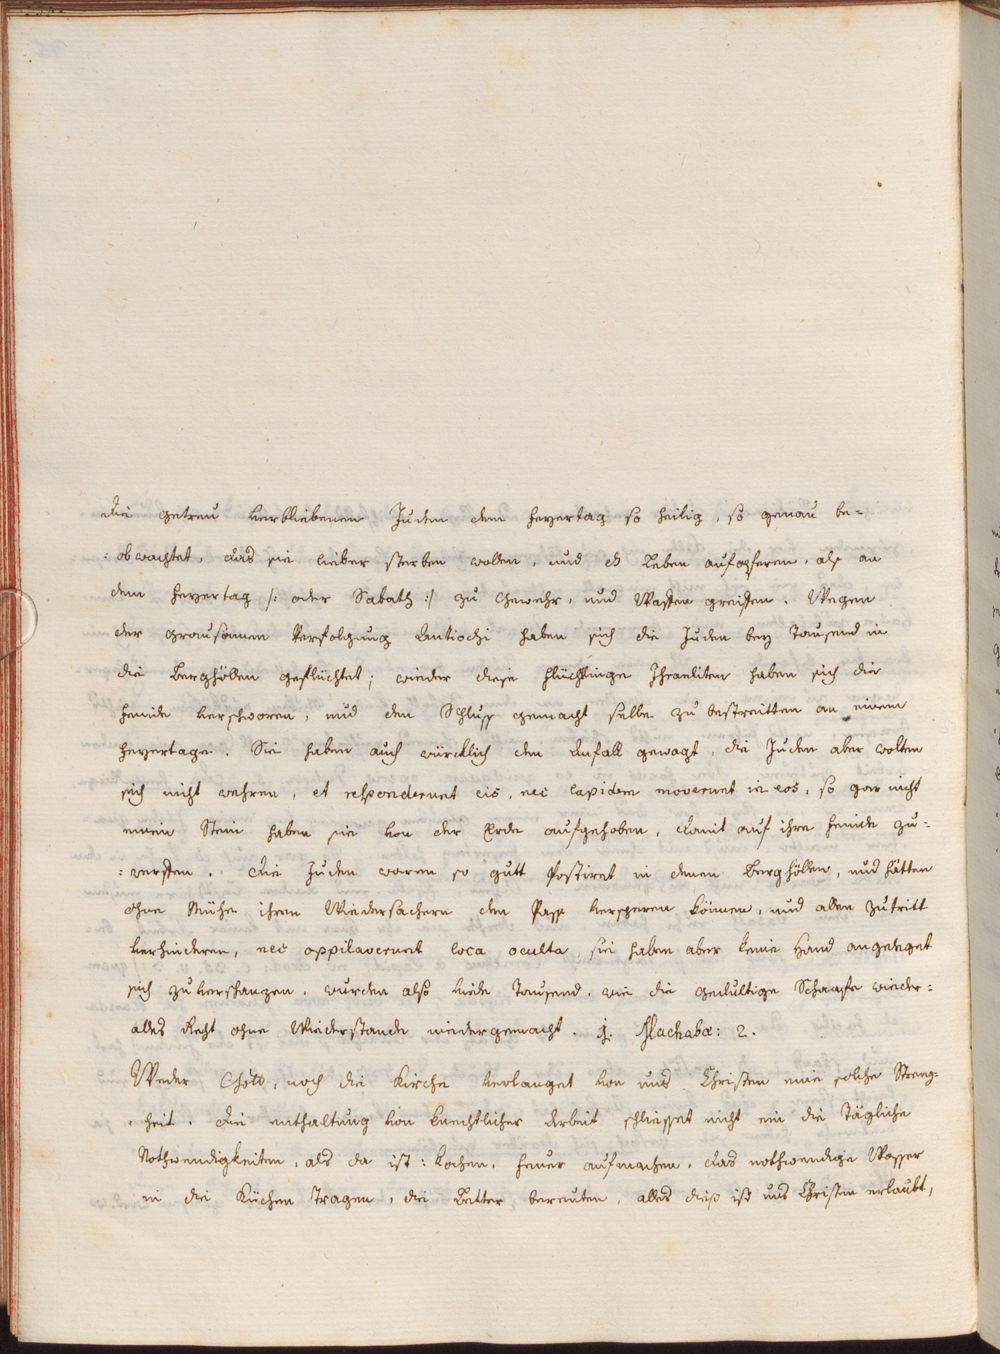 die getreu verbliebenen Juden den feyertag so heilig, so genau be=
=obwachtet, das sie lieber sterben wolten, und ds Leben aufopferen, als an
dem feyertag /: oder Sabath :/ zu Gewehr, und Waffen greiffen. Wegen
der grausamen Verfolgung Antiochi haben sich die Juden bey Tausend in
die Berghöllen geflüchtet; wieder diese flüchtlinge Israeliten haben sich die
feinde verschworen, und den Schluss gemacht selbe zu bestreitten an einem
feyertage. Sie haben auch würcklich den Anfall gewagt, die Juden aber wolten
sich nicht wehren, et responderunt eis, nec lapidem moverunt in eos, so gar nicht
einen Stein haben sie von der Erde aufgehoben, damit auf ihre feinde zu=
=werffen. Die Juden waren so gutt Postiret in denen Berghöllen, und hätten
ohne Mühe ihren Wiedersachern den Pass versperen können, und allen Zutritt
verhinderen, nec oppilaverunt loca oculta, sie haben aber keine Hand angeleget
sich zu verschanzen, wurden also viele Tausend, wie die gedultige Schaafe wieder=
alles Recht ohne Wiederstande niedergemacht. 1. Machabæ: 2.
Weder Gott, noch die Kirche verlanget von uns Christen eine solche Streng=
=heit. Die enthaltung von knechtlicher Arbeit schliesset nicht ein die Tägliche
Nothwendigkeiten, als da ist: kochen, feuer aufmachen, das nothwendige Wasser
in die Küchen tragen, die Better bereiten, alles dieß ist uns Christen erlaubt,